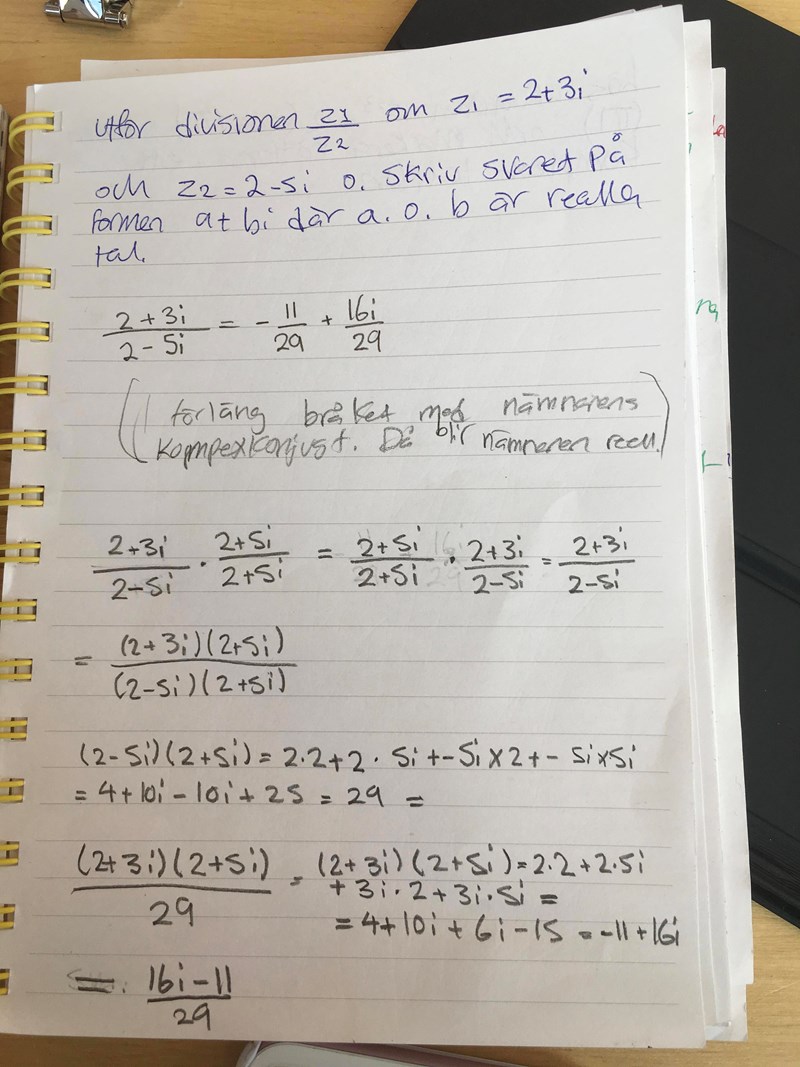 Utför divisionen z1/z2 om z1 = 2+3i
och z2 = 2-5i o. skriv svaret på
formen a+bi där a. o. b är reella
tal.
(2+3i)/(2-5i) = -11/29 + 16i/29
(förläng bråket med nämnarens
kompexkonjugat. Då blir nämneren reell.)
(2+3i)/(2-5i) · (2+5i)/(2+5i) = (2+5i)/(2+5i) · (2+3i)/(2-5i) = (2+3i)/(2-5i)
= (2+3i)(2+5i)/(2-5i)(2+5i)
(2-5i)(2+5i) = 2·2+2· 5i +-5i×2+- 5i×5i
= 4+10i-10i+25 = 29 =
(2+3i)(2+5i)/29 = (2+3i)(2+5i)=2·2+2·5i
+3i·2+3i·5i =
= 4+10i+6i-15 = -11+16i
= (16i-11)/29